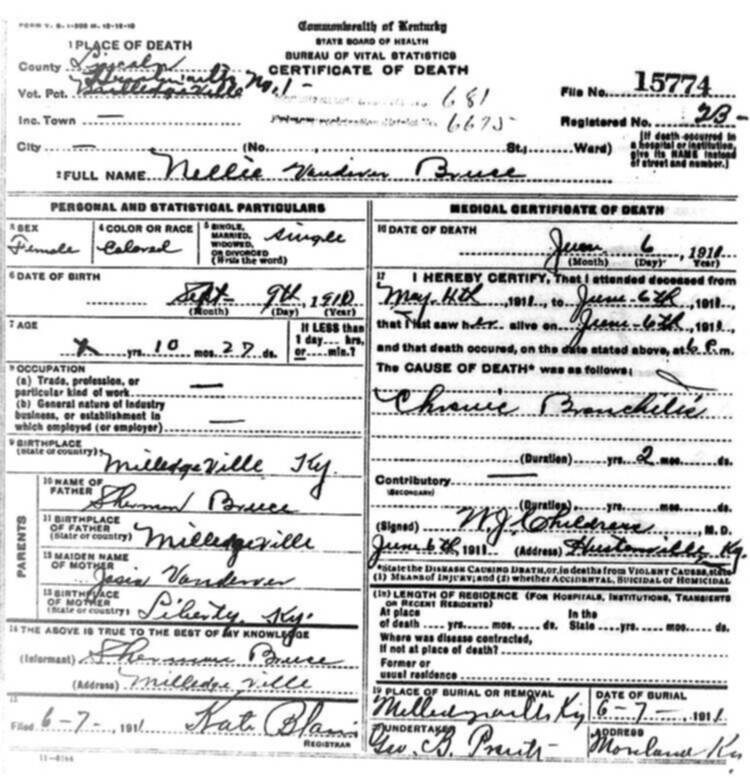 FORM V. S. 1-
Commonwealth of Kentucky
STATE BOARD OF HEALTH
BUREAU OF VITAL STATISTICS
CERTIFICATE OF DEATH
1 PLACE OF DEATH
County Lincoln
Hustonville
Vot. Pct. Milledgeville No. 1-
681
File No. 15774
Inc. Town —
6675
Registered No. 23-
City — (No. St.; Ward)
(If death occurred in a hospital or institution, give its NAME instead of street and number.)
2 FULL NAME Nellie Vandiver Bruce
PERSONAL AND STATISTICAL PARTICULARS
3 SEX
Female
4 COLOR OR RACE
Colored
5 SINGLE, MARRIED, WIDOWED, OR DIVORCED (Write the word)
Single
6 DATE OF BIRTH
Sept- 9th, 1910
(Month) (Day) (Year)
7 AGE
x yrs. 10 mos. 27 ds.
If LESS than 1 day — hrs. or — min.?
8 OCCUPATION
(a) Trade, profession, or particular kind of work —
(b) General nature of industry business, or establishment in which employed (or employer) —
9 BIRTHPLACE
(State or country) Milledgeville Ky.
PARENTS
10 NAME OF FATHER
Sherman Bruce
11 BIRTHPLACE OF FATHER
(State or country) Milledgeville
12 MAIDEN NAME OF MOTHER
Josia Vandever
13 BIRTHPLACE OF MOTHER
(State or country) Liberty Ky.
14 THE ABOVE IS TRUE TO THE BEST OF MY KNOWLEDGE
(Informant) Sherman Bruce
(Address) Milledgeville
15
Filed 6-7-, 1911 Kate Blain
REGISTRAR
MEDICAL CERTIFICATE OF DEATH
16 DATE OF DEATH
June 6, 1911
(Month) (Day) (Year)
17 I HEREBY CERTIFY, That I attended deceased from
May 4th, 1911, to June-6th, 1911,
that I last saw her alive on June-6th, 1911,
and that death occured, on the date stated above, at 6 P.m.
The CAUSE OF DEATH* was as follows:
Chronic Bronchitis
(Duration) yrs. 2 mos. ds.
Contributory —
(SECONDARY)
(Duration) yrs. mos. ds.
(Signed) W.J. Childress, M.D.
June 6th, 1911 (Address) Hustonville, Ky.
*State the DISEASE CAUSING DEATH, or, in deaths from VIOLENT CAUSES, state
(1) MEANS OF INJURY; and (2) whether ACCIDENTAL, SUICIDAL or HOMICIDAL
(18) LENGTH OF RESIDENCE (FOR HOSPITALS, INSTITUTIONS, TRANSIENTS OR RECENT RESIDENTS)
At place of death yrs. mos. ds. In the State yrs. mos. ds.
Where was disease contracted,
If not at place of death?
Former or
usual residence
19 PLACE OF BURIAL OR REMOVAL
Milledgeville Ky
DATE OF BURIAL
6-7-, 1911
UNDERTAKER
Geo. B. Pruitt
ADDRESS
Moreland Ky
11-8164